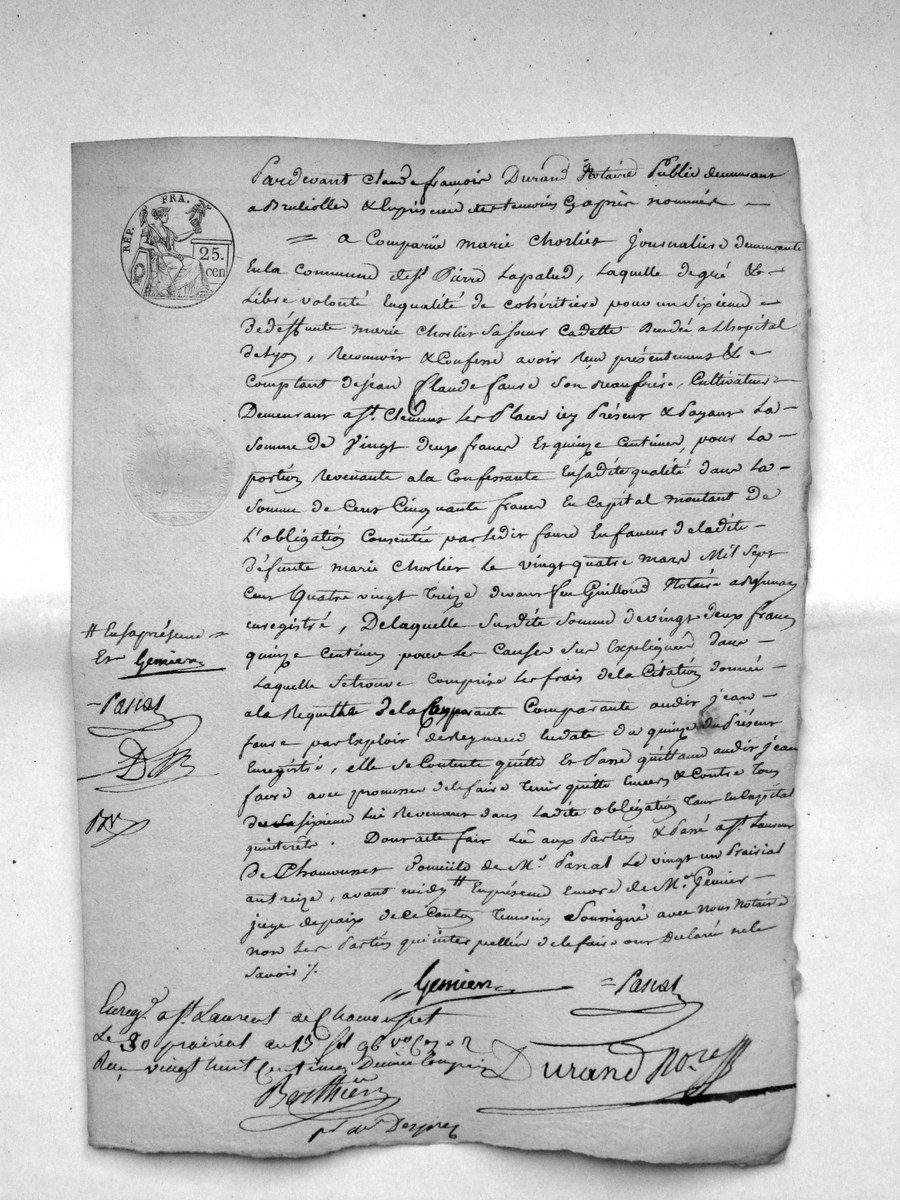 RÉP. FRA.
25.
cen
Pardevant Claude françois Durand Notaire Public demeurant
a Bruliolles & En présence des temoins Cy après nommés
= a Comparüe marie Chorlier Journalière demeurante
En la Commune de St. Pierre Lapalud, Laquelle de gré &
Libre volonté En qualité de cohéritière pour un Sixieme
de deffunte marie Chorlier Sa soeur Cadette décédée a L'hopital
de Lyon, & Confesse avoir reçu présentement &
Comptant de jean Claude faure Son beaufrère, Cultivateur
Demeurant a St. Clément Les Places icy Présent & Payant La
Somme de Vingt deux francs Et quinze Centimes, pour La
portion Revenante a la Confessante En sadite qualité dans La
Somme de Cent Cinquante francs En Capital montant de
L'obligation Consentie par ledit faure En faveur de ladite
défunte marie Chorlier Le vingt quatre mars Mil Sept
Cent Quatre vingt treize devant feu Guilloud Notaire a
enregistré, De laquelle Susdite Somme de vingt deux francs
quinze Centimes pour les Causes Sus Expliquées dans
Laquelle Se trouve Comprise Les frais de la Citation donnée
a la Requette de la Comparante audit jean
faure par Exploit de Reynaud En date du quinze du Présent
Enregistré, elle Se Contente quitte Et Passe quittance audit jean
faure avec promesse de le faire Tenir quitte Envers & Contre Tous
du Sasixieme Lui Revenant dans Ladite obligation Tant En Capital
qu'intérêts. Dont acte fait Lû aux Parties & Passé a St. Laurent
de Chamousset Domicile de Mr. Pascal Le vingt un Prairial
an treize, avant midy # En présence encore de Mr. Gemier
juge de paix de Ce Canton Temoins Soussigné avec Nous Notaire
non Les Parties qui interpellées de le faire ont Déclaré ne le
Savoir /.
# En sa présence
Et Gemier
Pascal
D
Gemier = Pascal
Durand Nore
Enregé. a St. Laurent de Chamousset
Le 30 prairial an 13 fol 96 vo Case 2
Reçu vingt huit Centimes Décime Compris
Berthier